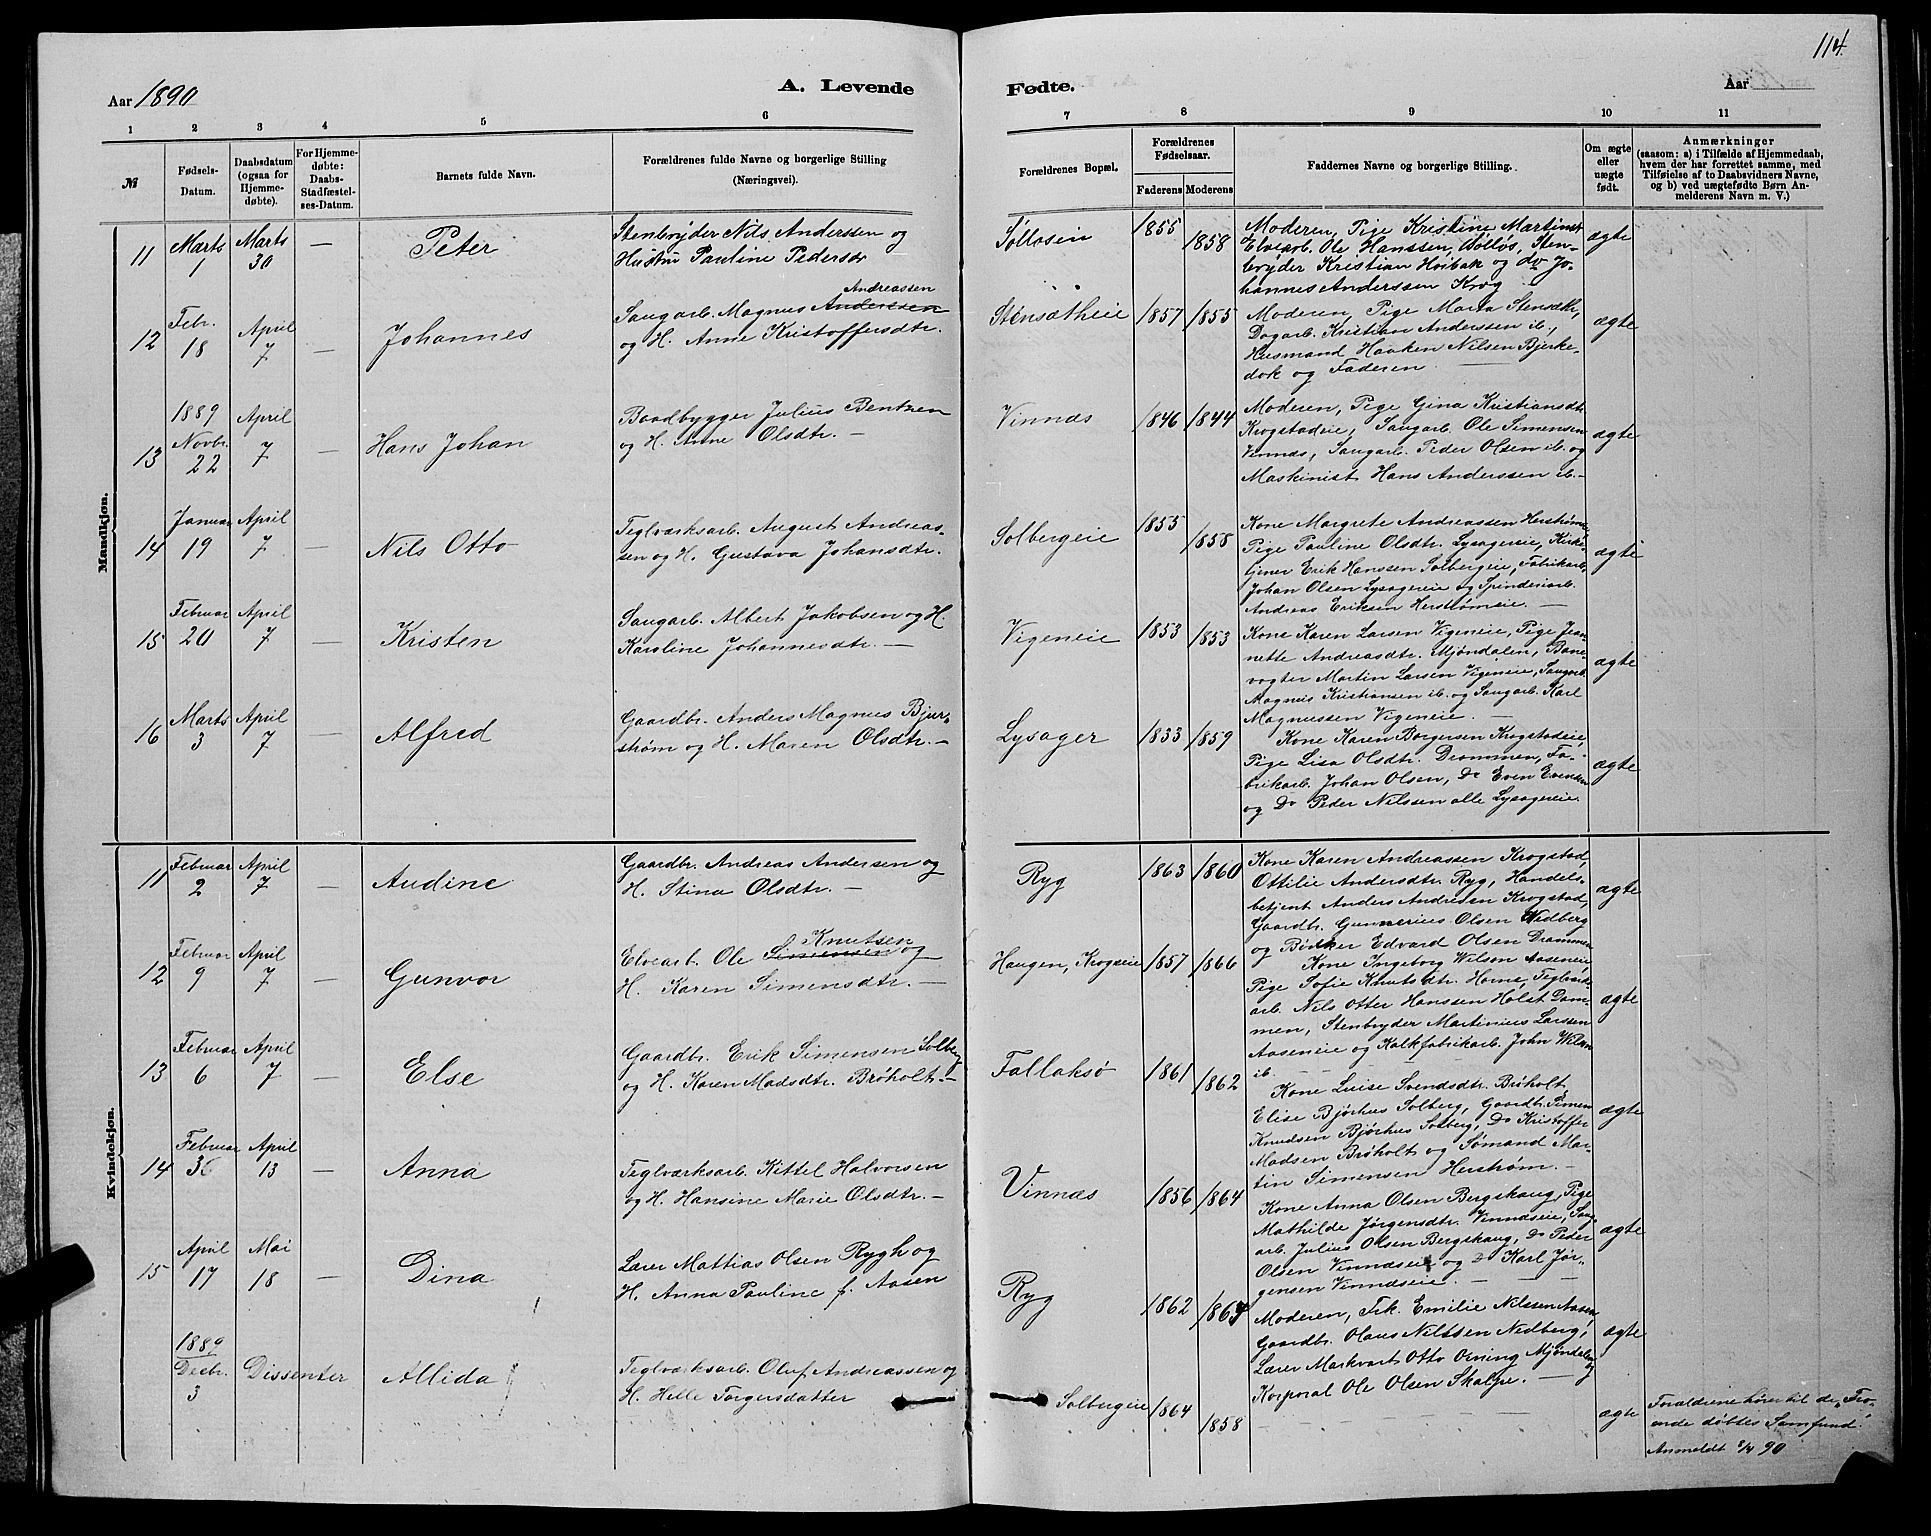 114.
Aar 1890
A. Levende
Fødte.
Aar
1 2 3 4 5 6
7 8 9 10 11
№
Fødsels-
Datum.
Daabsdatum
(ogsaa for
Hjemme-
døbte).
For Hjemme-
døbte:
Daabs-
Stadfæstel-
ses-Datum.
Barnets fulde Navn.
Forældrenes fulde Navne og borgerlige Stilling
(Næringsvei).
Forældrenes Bopæl.
Forældrenes
Fødselsaar.
Faderens
Moderens
Faddernes Navne og borgerlige Stilling.
Om ægte
eller
uægte
født.
Anmærkninger
(saasom: a) i Tilfælde af Hjemmedaab,
hvem der har forrettet samme, med
Tilføielse af to Daabsvidners Navne,
og b) ved uægtefødte Børn An-
melderens Navn m. V.)
Mandkjøn.
11 Marts 1 Marts 30 — Peter
Stenbryder Nils Anderssen og
Hustru Pauline Pedersdr
Solløsein 1855 1858
Moderen, Pige Kristine Martinsdt
Elvearb. Ole Hanssen, Solløs, Sten-
bryder Kristian Hoibak og do Jo-
hannes Anderssen Krog
ægte
12 Febr. 18 April 7 — Johannes
Andreassen
Saugarb. Magnus Anderssen
og H. Anne Kristoffersdtr.
Stensætheie 1857 1855
Moderen, Pige Marta Stensæth,
Dagarb. Kristian Anderssen ib.,
Husmand Haaken Nilsen Bjerke-
dok og Faderen
ægte
13 1889 Novbr. 22 April 7 — Hans Johan
Baadbygger Julius Bentzen
og H. Anne Olsdtr. —
Vinnæs 1846 1844
Moderen, Pige Gina Kristiansdt
Krogstadeie, Saugarb. Ole Simensen
Vinnæs, Saugarb. Peder Olsen ib. og
Maskinist Hans Anderssen ib.—
ægte
14 Januar 19 April 7 — Nils Otto
Teglværksarb. August Andreas-
sen og H. Gustava Johansdtr.
Solbergeie 1855 1858
Kone Margrete Andreassen Herstrøm,
Pige Pauline Olsdtr. Lysagereie, Kirke-
tjener Erik Hanssen Solbergeie, Fabrikarb.
Johan Olsen Lysagereie og Spinderiarb.
Andreas Eriksen Herstrømeie. —
ægte
15 Februar 20 April 7 — Kristen
Saugarb. Albert Jakobsen og H.
Karoline Johannesdtr. —
Vigeneie 1853 1853
Kone Karen Larsen Vigeneie, Pige Jean-
nette Andreasdtr. Mjøndalen, Bane-
vogter Martin Larsen Vigeneie, Saugarb.
Magnus Kristiansen ib. og Saugarb. Karl
Magnussen Vigeneie. —
ægte
16 Marts 3 April 7 — Alfred
Gaardbr. Anders Magnus Bjur-
strøm og H. Maren Olsdtr. —
Lysager 1833 1859
Kone Karen Borgersen Krogstadeie,
Pige Lisa Olsdtr. Drammen, Fa-
brikarb. Johan Olsen, Do Even Evensen
og Do Peder Nilssen alle Lysagereie.
ægte
Kvindekjøn.
11 Februar 2 April 7 — Audine
Gaardbr. Andreas Andersen og
H. Stina Olsdtr. —
Ryg 1863 1860
Kone Karen Andreassen Krogstad,
Ottilie Andersdtr. Ryg, Handels-
betjent Anders Andresen Krogstad,
Gaardbr. Gunnerius Olsen Nedberg
og Bødker Edvard Olsen Drammen
ægte
12 Februar 9 April 7 — Gunvor
Knutsen
Elvearb. Ole Simensen og
H. Karen Simensdtr. —
Haugen, Krogseie 1857 1866
Kone Ingeborg Wilson Aaseneie
Pige Sofie Knutsdtr. Horne, Teglværk-
arb. Nils Otter Hanssen Holst Dam-
men, Stenbryder Martinius Larssen
Aaseneie og Kalkfabrikarb. John Wilson
ib. — — —
ægte
13 Februar 6 April 7 — Else
Gaardbr. Erik Simensen Solberg
og H. Karen Madsdtr. Brøholt.—
Fallaksø 1861 1862
Kone Luise Svendsdtr. Brøholt
Elise Bjørhus Solberg, Gaardbr. Simen
Knudsen Bjørhus Solberg, Do Kristoffer
Madsen Brøholt og Sømand Mar-
tin Simensen Herstrøm. —
ægte
14 Februar 36 April 13 — Anna
Teglværksarb. Kittel Halvorsen
og H. Hansine Marie Olsdtr. —
Vinnæs 1856 1864
Kone Anna Olsen Bergskaug, Pige
Mathilde Jørgensdtr. Vinnæseie, Saug
arb. Julius Olsen Bergskaug, Do Peder
Olsen Vinnæseie og Do Karl Jør-
gensen Vinnæseie. — —
ægte
15 April 17 Mai 18 — Dina
Lærer Mattias Olsen Rygh og
H. Anna Pauline f. Aasen
Ryg 1862 1865
Moderen, Frk. Emilie Nilssen Aasen,
Gaardbr. Olaus Nilssen Nedberg,
Lærer Markvart Otto Orning Mjøndalen og
Korporal Ole Olsen Skalpe. —
ægte
1889 Decbr. 3 Dissenter Allida
Teglværksarb. Oluf Andreassen og
H. Helle Torgersdatter
Solbergeie 1864 1858
— — — —
ægte
Forældrene hører til de „Tro-
ende døbtes Samfund".
Anmeldt 8/4 90